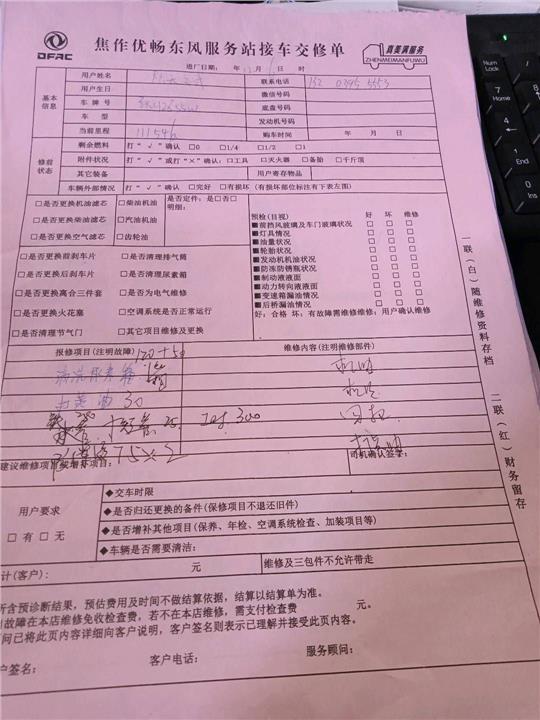 DFAC
焦作优畅东风服务站接车交修单
真美满服务
ZHENMEIMANFUWU
进厂日期： 年 月 日 时
基本信息
用户姓名
联系电话
用户生日
微信号码
车 牌 号
底盘号码
车 型
发动机号码
当前里程 111546
购车时间 年 月 日
修前状态
剩余燃料 打“√”确认 □0 □1/4 □1/2 □1
附件状况 打“√”或打“×”确认：□工具 □灭火器 □备胎 □千斤顶
其它装备 用户寄存物品
车辆外部情况 打“√”确认 □完好 □有损坏（有损坏部位标注有下表左图）
□是否更换机油滤芯 □柴油机油
□是否更换柴油滤芯 □汽油机油
□是否更换空气滤芯 □齿轮油
是否定件：是□否□
明细：
□是否更换前刹车片 □是否清理排气筒
□是否更换后刹车片 □是否清理尿素箱
□是否更换离合三件套 □是否为电气维修
□是否更换火花塞 □空调系统是否正常运行
□是否清理节气门 □其它项目维修及更换
预检(目视) 好 坏 维修
■前挡风玻璃及车门玻璃状况
■灯具情况
■油量状况
■轮胎状况
■发动机机油状况
■防冻防锈瓶状况
■制动液液面
■动力转向液液面
■变速箱漏油情况
■后桥漏油情况
好：合格 坏：有故障需维修维修：用户确认维修
报修项目(注明故障) 120+50
维修内容(注明维修部件)
清洗尿素箱
打黄油 30
300
75×2
建议维修项目或增补项目：
司机确认签字：
用户要求
□有 □无
◆交车时限
◆是否归还更换的备件（保修项目不退还旧件）
◆是否增补其他项目(保养、年检、空调系统检查、加装项目等)
◆车辆是否需要清洁：
计(客户)： 元
维修及三包件不允许带走
所含预诊断结果，预估费用及时间不做结算依据，结算以结算单为准。
故障在本店维修免收检查费，若不在本店维修，需支付检查费 元。
问已将此页内容详细向客户说明，客户签名则表示已理解并接受此页内容。
户签名：
客户电话：
服务顾问：
一联（白）随维修资料存档
二联（红）财务留存
Num Lock
7 Home
4
1 End
0 Ins